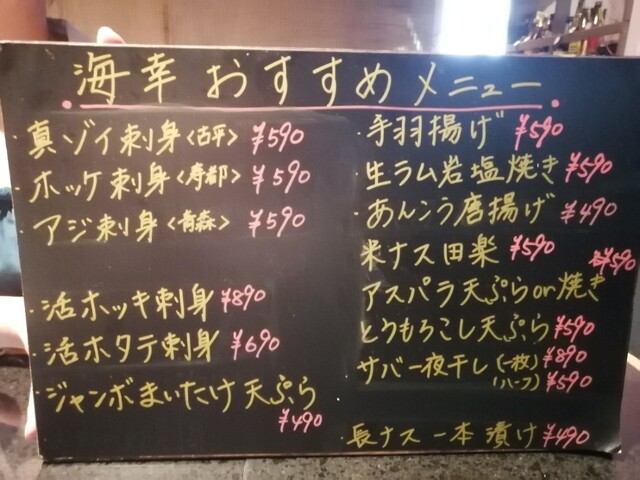 海幸おすすめメニュー
・真ゾイ刺身<古平> ¥590
・ホッケ刺身<寿都> ¥590
・アジ刺身<青森> ¥590
・活ホッキ刺身 ¥890
・活ホタテ刺身 ¥690
・ジャンボまいたけ天ぷら
¥490
・手羽揚げ ¥590
・生ラム岩塩焼き ¥590
・あんこう唐揚げ ¥490
米ナス田楽 ¥590
¥590
アスパラ天ぷらor焼き
とうもろこし天ぷら ¥590
サバ一夜干し(一枚) ¥890
(ハーフ) ¥590
長ナス一本漬け ¥490